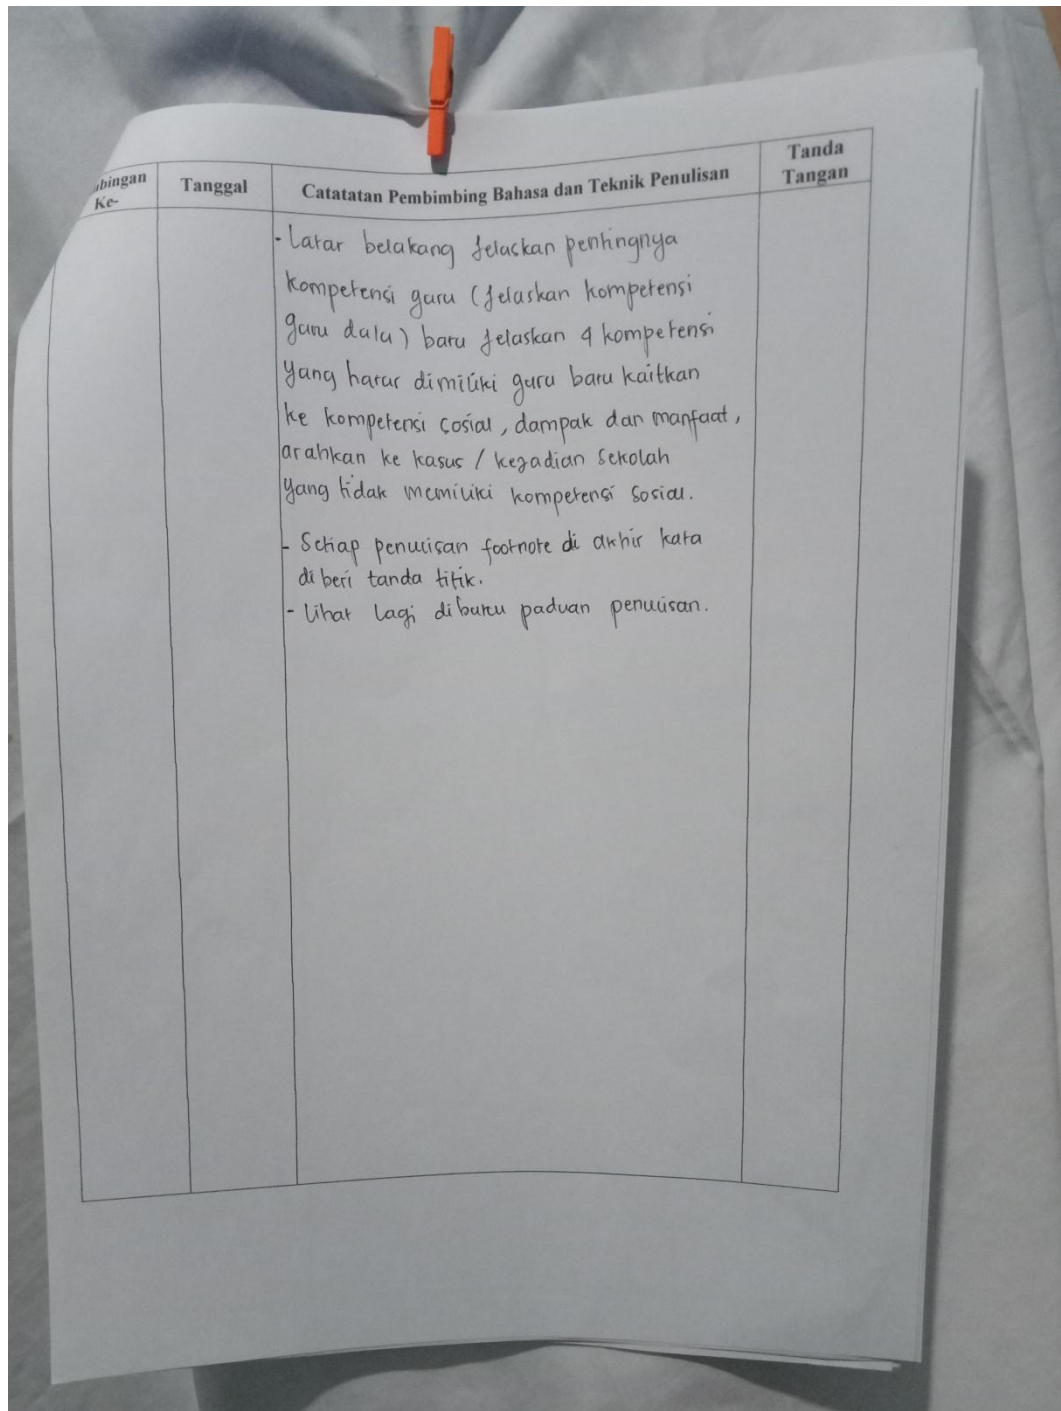 bingan
Ke-
Tanggal
Catatatan Pembimbing Bahasa dan Teknik Penulisan
Tanda
Tangan
- Latar belakang jelaskan pentingnya
kompetensi guru (jelaskan kompetensi
guru dulu) baru jelaskan 4 kompetensi
yang harus dimiliki guru baru kaitkan
ke kompetensi sosial, dampak dan manfaat,
arahkan ke kasus / kejadian sekolah
yang tidak memiliki kompetensi sosial.
- Setiap penulisan footnote di akhir kata
di beri tanda titik.
- Lihat lagi dibuku paduan penulisan.